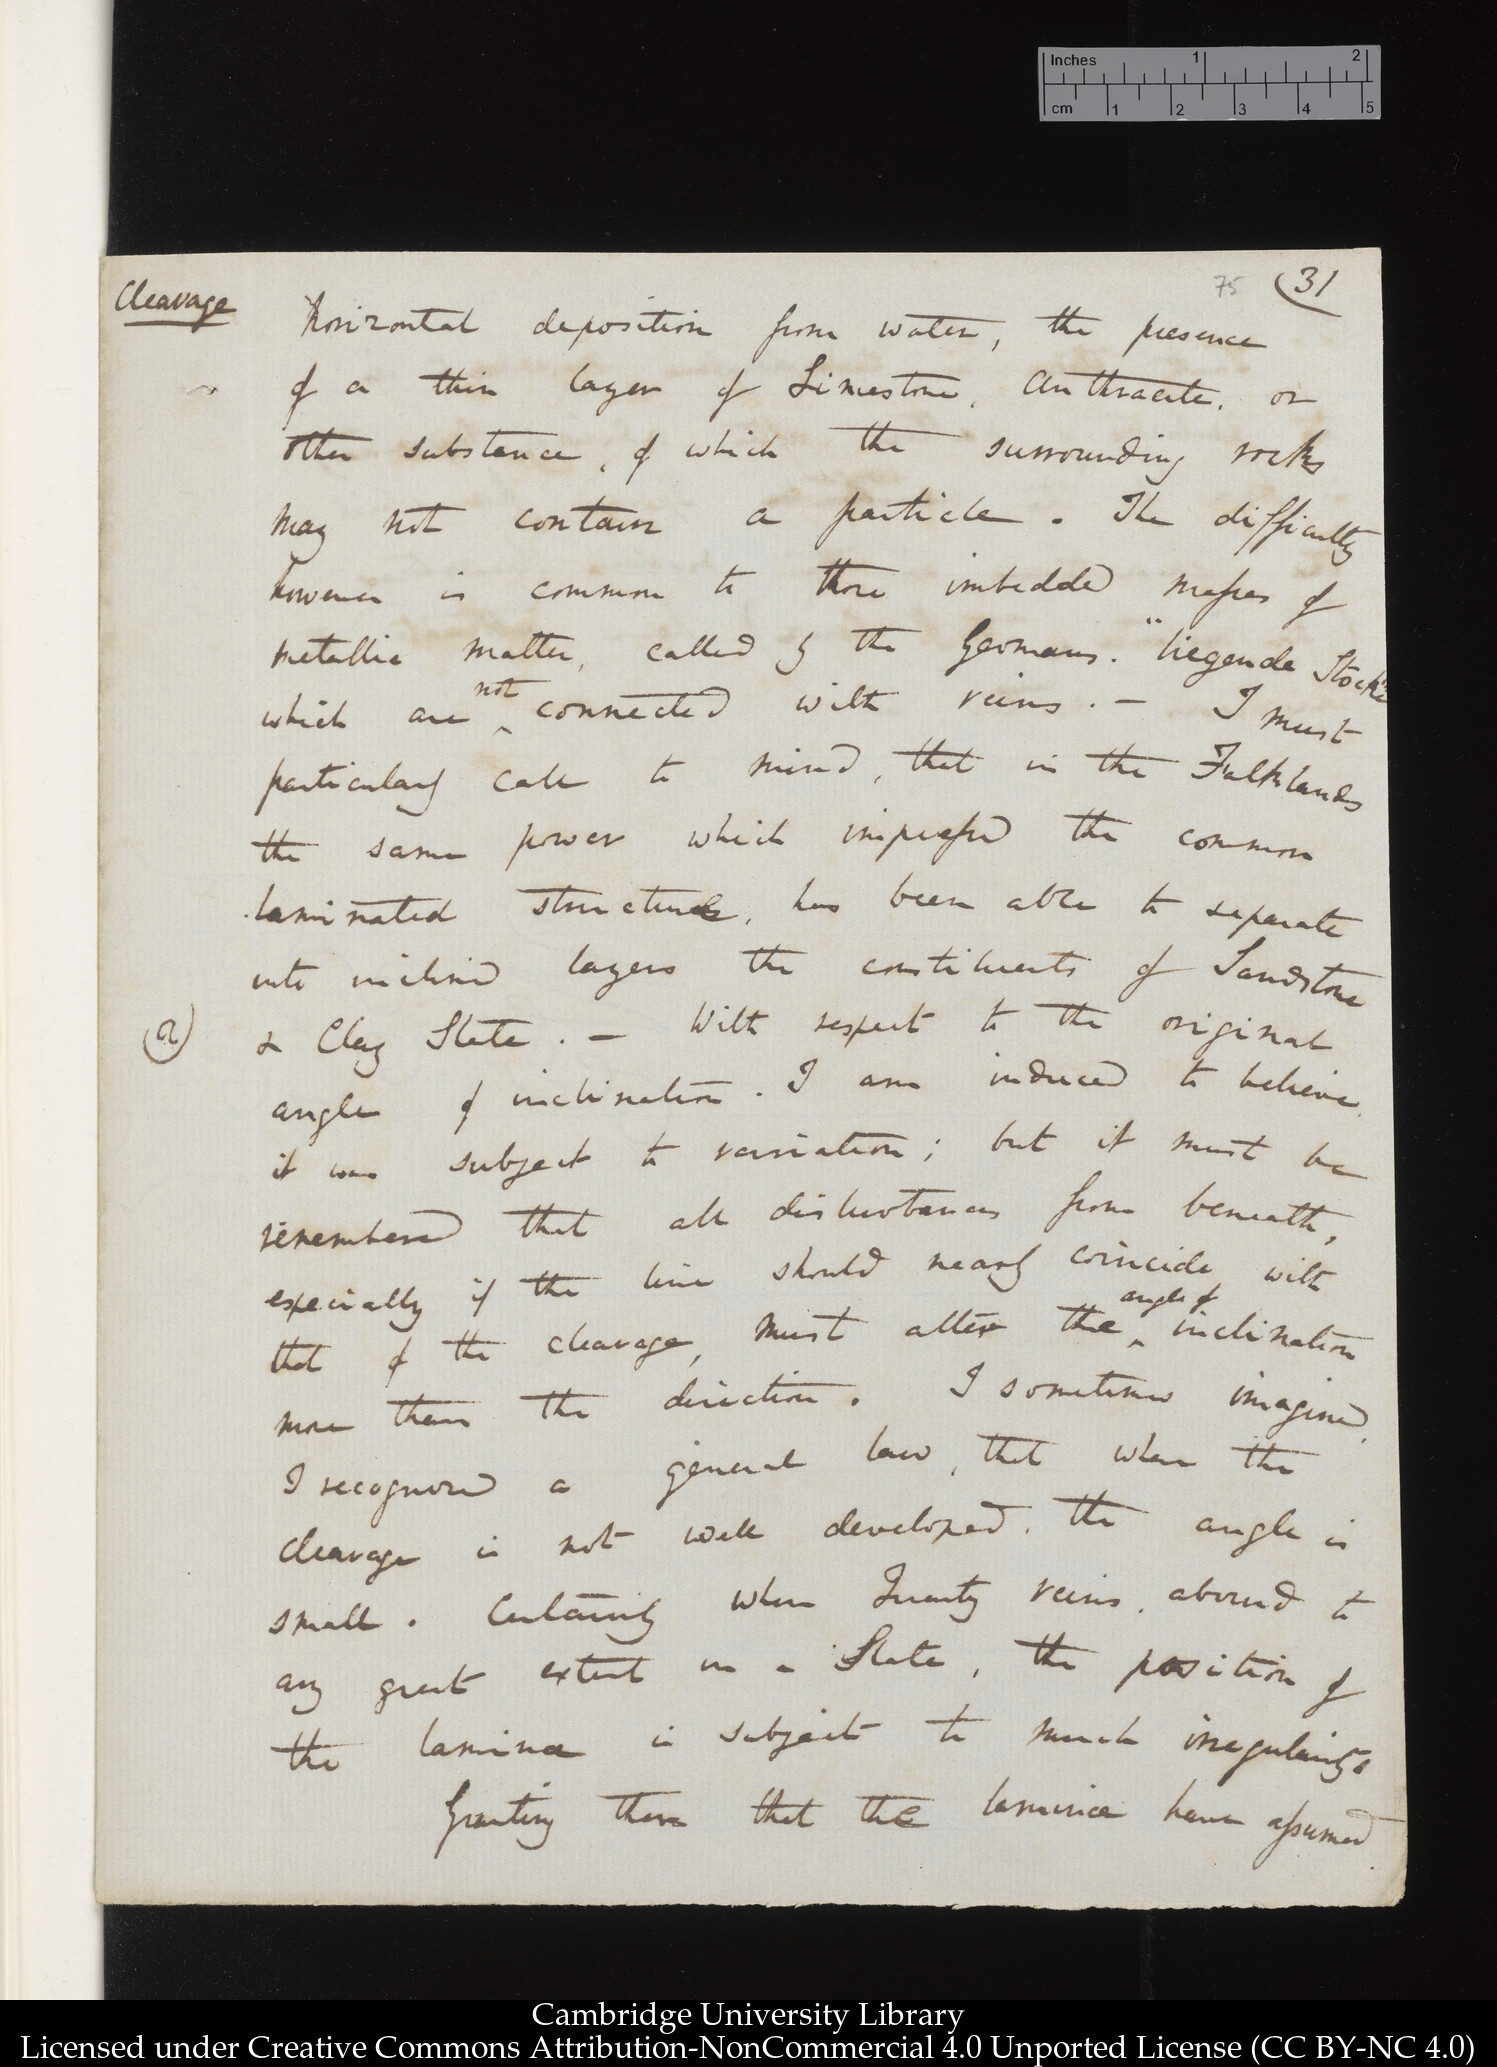 Inches 1 2
cm 1 2 3 4 5
Cleavage
75 (31
horizontal deposition from water, the presence
of a thin layer of Limestone, Anthracite, or
other substance, of which the surrounding rocks
may not contain a particle. The difficulty
however is common to those imbedded masses of
metallic matter, called by the Germans. "liegende Stocke"
not
which are ^ connected with veins. — I must
particularly call to mind, that in the Falklands
the same power which impressed the common
laminated structure, has been able to separate
into inclined layers the constituents of Sandstone
(a)
& Clay Slate. — With respect to the original
angle of inclination. I am induced to believe
it was subject to variation; but it must be
remembered that all disturbances from beneath,
especially if the line should nearly coincide with
angle of
that of the cleavage, must alter the ^ inclination
more than the direction. I sometimes imagined
I recognized a general law, that when the
cleavage is not well developed, the angle is
small. Certainly when Quartz veins, abound to
any great extent in a Slate, the position of
the laminæ is subject to much irregularity.
Granting then that the laminæ have assumed
Cambridge University Library
Licensed under Creative Commons Attribution-NonCommercial 4.0 Unported License (CC BY-NC 4.0)